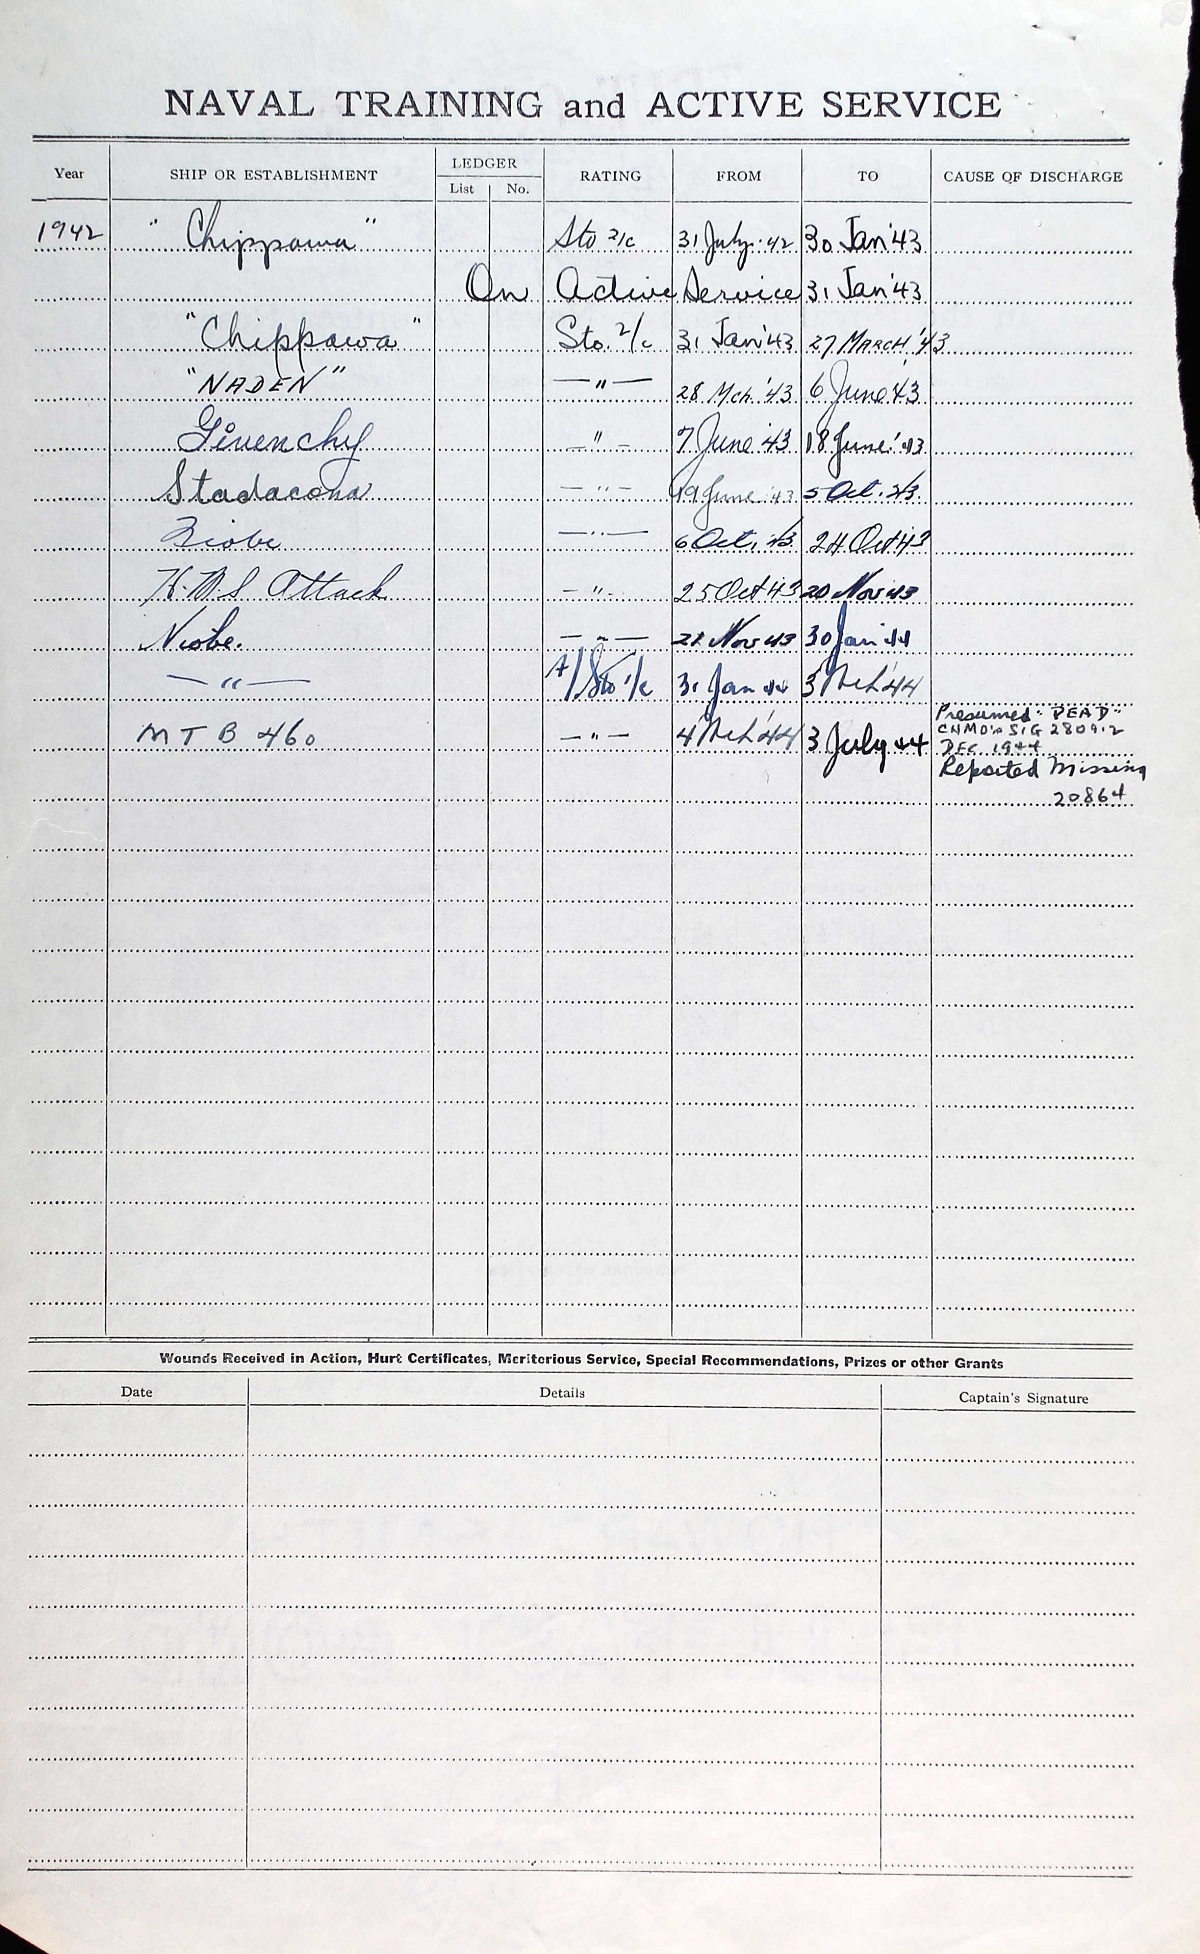 NAVAL TRAINING and ACTIVE SERVICE
Year SHIP OR ESTABLISHMENT LEDGER List No. RATING FROM TO CAUSE OF DISCHARGE
1942 "Chippawa" Sto 2/c 31 July. 42 30 Jan '43
On Active Service 31 Jan '43
"Chippawa" Sto. 2/c 31 Jan '43 27 MARCH '43
"NADEN" —"— 28 Mch. '43 6 June '43
Givenchy —"— 7 June '43 18 June '43
Stadacona —"— 19 June '43 5 Oct. 43
Niobe —"— 6 Oct. 43 24 Oct 43
H.M.S Attack —"— 25 Oct 43 20 Nov 43
Niobe. —"— 21 Nov 43 30 Jan 44
—"— A/Sto 1/c 31 Jan 44 3 Mch '44
MTB 460 —"— 4 Mch '44 3 July 44 Presumed "DEAD"
CNMO's SIG 280912
DEC 1944
Reported Missing
20864
Wounds Received in Action, Hurt Certificates, Meritorious Service, Special Recommendations, Prizes or other Grants
Date Details Captain's Signature